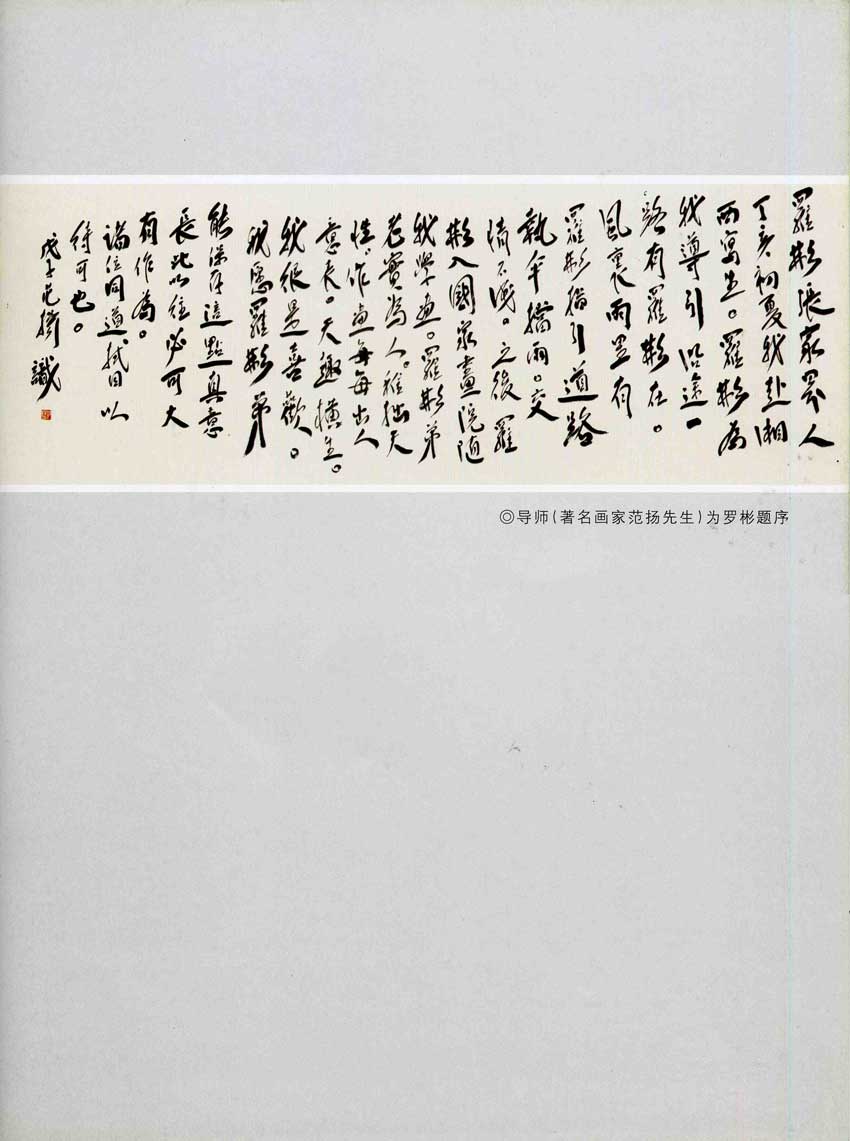 羅彬張家界人
丁亥初夏我赴湘
西寫生。羅彬為
我導引沿途一
路有羅彬在。
風裏雨里有
羅彬指引道路
執傘擋雨。交
情不淺。之後羅
彬入國家畫院随
我學畫。羅彬弟
老實為人。稚拙天
性。作畫每每出人
意表。天趣横生。
我很是喜歡。
我愿羅彬弟
能保存這點真意
長此以往必可大
有作為。
諸位同道拭目以
待可也。
戊子范揚識
◎导师(著名画家范扬先生)为罗彬题序